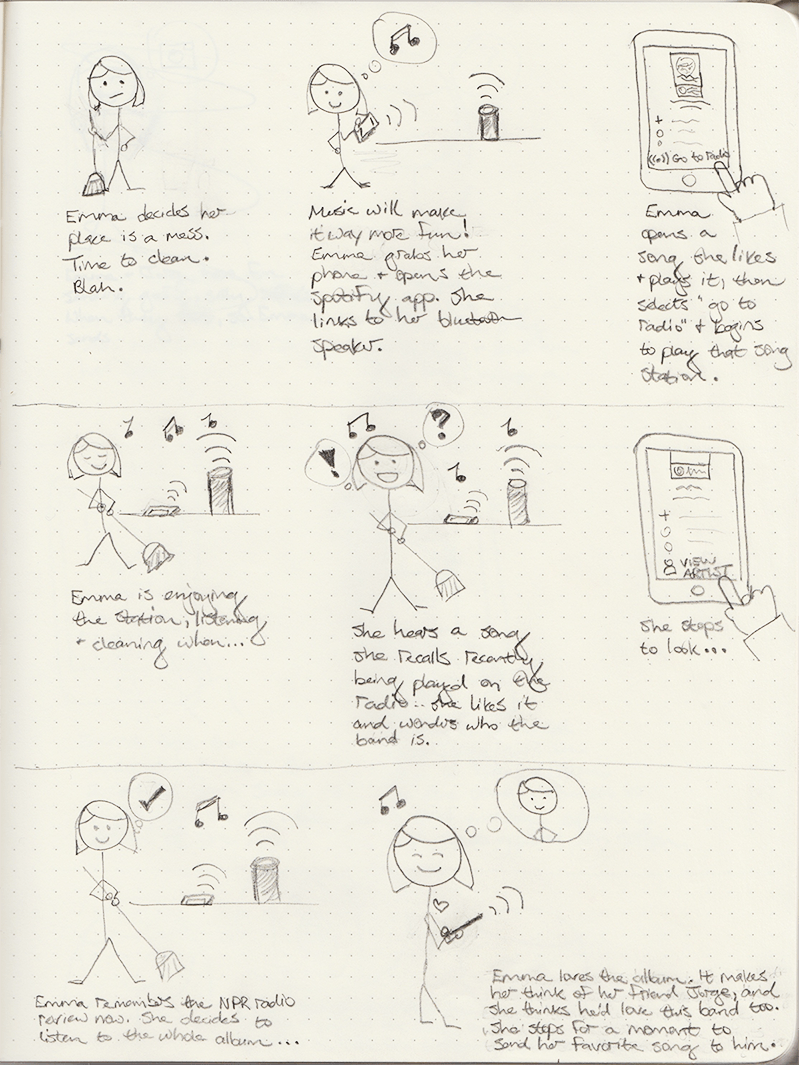 Emma decides her
place is a mess.
Time to clean.
Blah.
Music will make
it way more fun!
Emma grabs her
phone + opens the
spotify app. She
links to her bluetooth
speaker.
((o)) Go to radio
Emma
opens a
song she likes
+ plays it, then
selects "go to
radio" + begins
to play that song
station.
Emma is enjoying
the station, listening
+ cleaning when...
!
?
She hears a song
she recalls recently
being played on the
radio... she likes it
and wonders who the
band is.
VIEW
ARTIST
She stops
to look...
Emma remembers the NPR radio
review now. She decides to
listen to the whole album...
Emma loves the album. It makes
her think of her friend Jorge, and
she thinks he'd love this band too.
She stops for a moment to
send her favorite song to him.